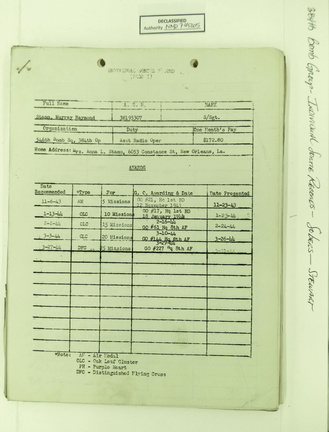 DECLASSIFIED
Authority
384th Bomb Group - Individual Sortie Records - Soless - Stewart
Full Name A. S. N. RANK
Stamm, Murray Raymond 38195307 S/Sgt.
Organization Duty One Month's Pay
546th Bomb Sq, 384th Gp Asst Radio Oper $172.80
Home Address: Mrs. Anna L. Stamm, 6053 Constance St, New Orleans, La.
AWARDS
Date Recommended *Type For G. O. Awarding & Date Date Presented
11-6-43 AM 5 Missions GO #21, Hq 1st BD 12 November 1943 11-23-43
1-13-44 OLC 10 Missions GO #17, Hq 1st BD 18 January 1944 1-23-44
OLC 15 Missions 2-16-44 GO #61 Hq 8th AF 2-24-44
OLC 20 Missions 3-16-44 GO Hq 8th AF 3-26-44
3-27-44 DFC 25 Missions GO #227 Hq 8th AF
*Note: AM - Air Medal
OLC - Oak Leaf Cluster
PH - Purple Heart
DFC - Distinguished Flying Cross